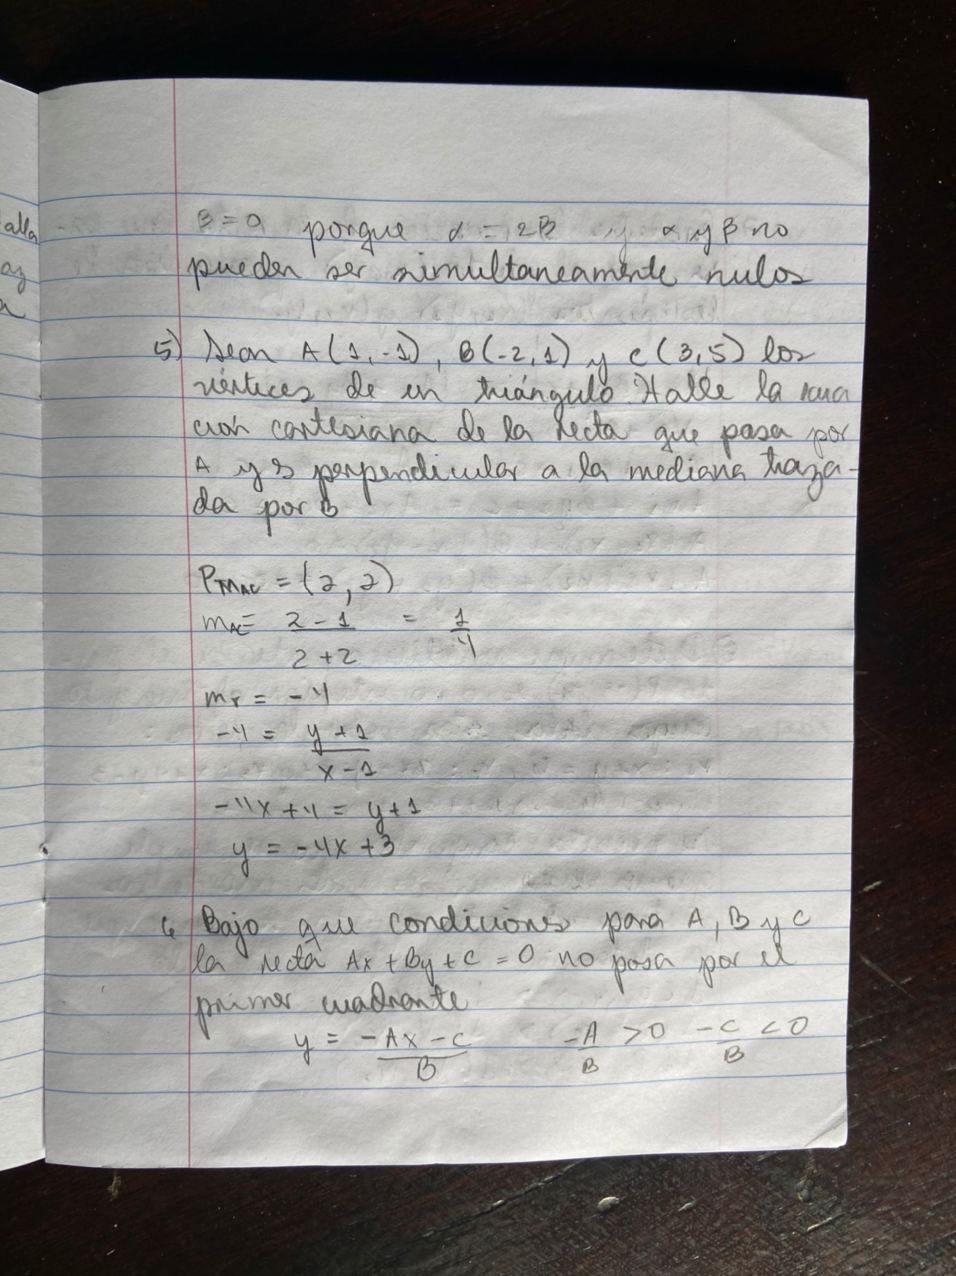 alla
β = 0 porque α = 2β y α y β no
pueden ser simultaneamente nulos
5) Sean A(1,-1), B(-2,1) y C(3,5) los
vértices de un triángulo. Halle la ecua
ción cartesiana de la recta que pasa por
A y es perpendicular a la mediana traza-
da por B
PMAC = (2,2)
mAC = 2-1 / 2+2 = 1/4
mr = -4
-4 = y+1 / x-1
-4x+4 = y+1
y = -4x+3
6 Bajo que condiciones para A, B y C
la recta Ax+By+C = 0 no pasa por el
primer cuadrante
y = -Ax-C / B -A/B >0 -C/B <0